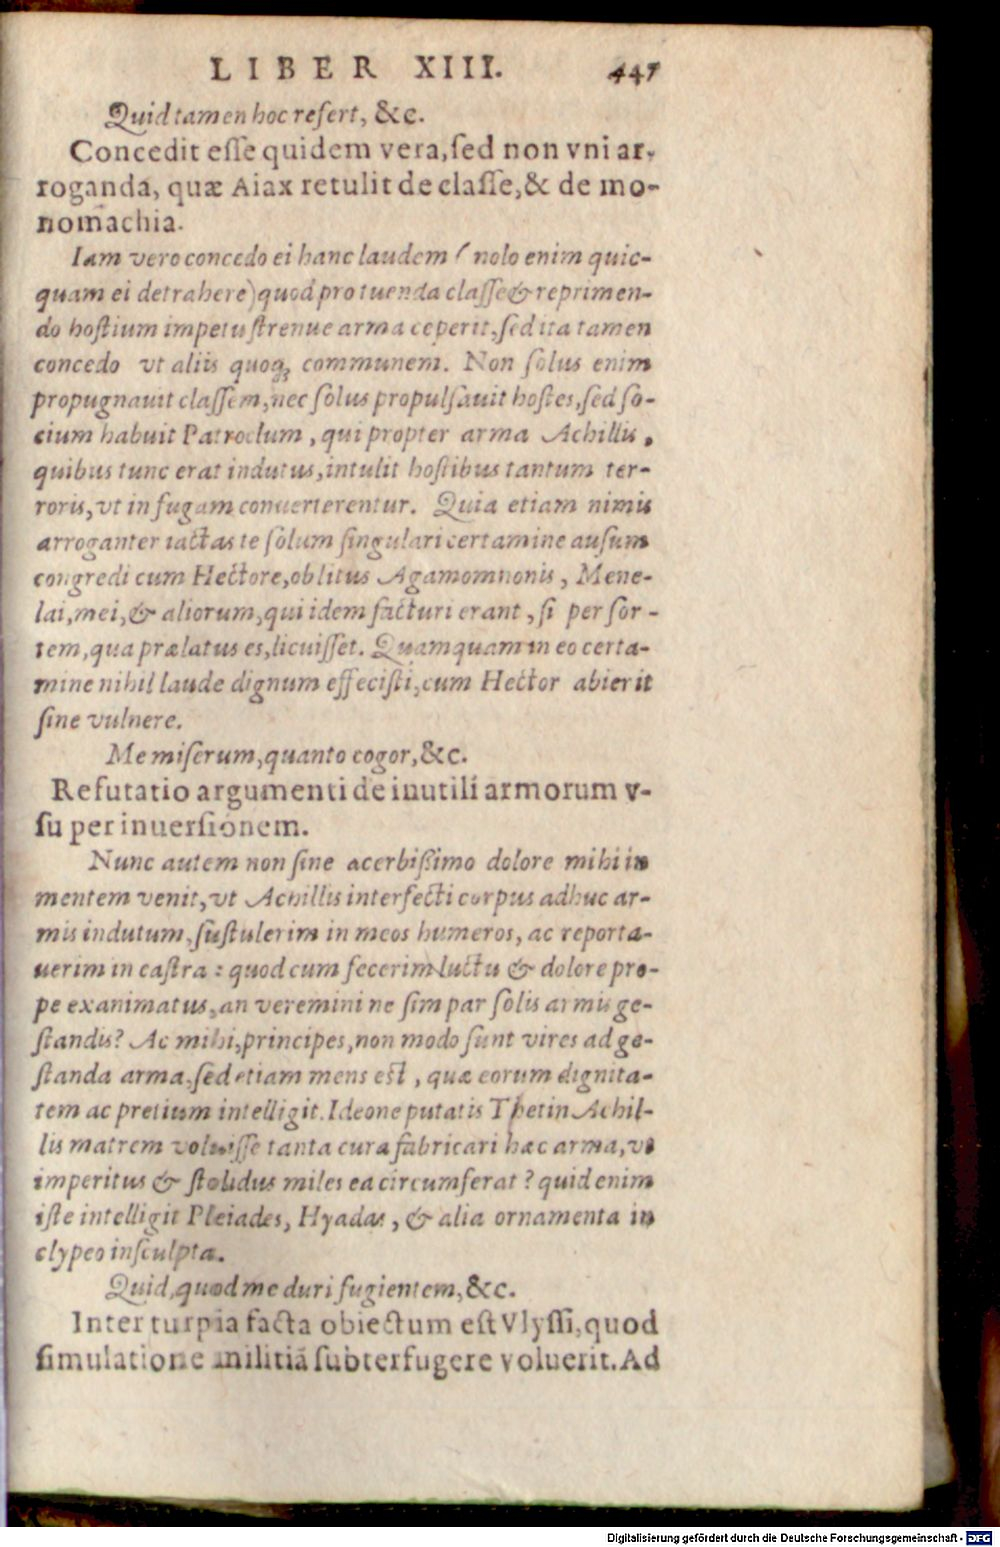 LIBER XIII. 447
Quid tamen hoc refert, &c.
Concedit esse quidem vera, sed non vni ar-
roganda, quæ Aiax retulit de classe, & de mo-
nomachia.
Iam vero concedo ei hanc laudem (nolo enim quic-
quam ei detrahere) quod pro tuenda classe & reprimen-
do hostium impetu strenue arma ceperit, sed ita tamen
concedo vt aliis quoq; communem. Non solus enim
propugnauit classem, nec solus propulsauit hostes, sed so-
cium habuit Patroclum, qui propter arma Achillis,
quibus tunc erat indutus, intulit hostibus tantum ter-
roris, vt in fugam conuerterentur. Quia etiam nimis
arroganter iactas te solum singulari certamine ausum
congredi cum Hectore, oblitus Agamomnonis, Mene-
lai, mei, & aliorum, qui idem facturi erant, si per sor-
tem, qua prælatus es, licuisset. Quamquam in eo certa-
mine nihil laude dignum effecisti, cum Hector abierit
sine vulnere.
Me miserum, quanto cogor, &c.
Refutatio argumenti de inutili armorum v-
su per inuersionem.
Nunc autem non sine acerbissimo dolore mihi in
mentem venit, vt Achillis interfecti corpus adhuc ar-
mis indutum, sustulerim in meos humeros, ac reporta-
uerim in castra: quod cum fecerim luctu & dolore pro-
pe exanimatus, an veremini ne sim par solis armis ge-
standis? Ac mihi, principes, non modo sunt vires ad ge-
standa arma, sed etiam mens est, quæ eorum dignita-
tem ac pretium intelligit. Ideone putatis Thetin Achil-
lis matrem voluisse tanta cura fabricari hæc arma, vt
imperitus & stolidus miles ea circumferat? quid enim
iste intelligit Pleiades, Hyadas, & alia ornamenta in
clypeo insculpta.
Quid, quod me duri fugientem, &c.
Inter turpia facta obiectum est Vlyssi, quod
simulatione militiã subterfugere voluerit. Ad
Digitalisierung gefördert durch die Deutsche Forschungsgemeinschaft - DFG